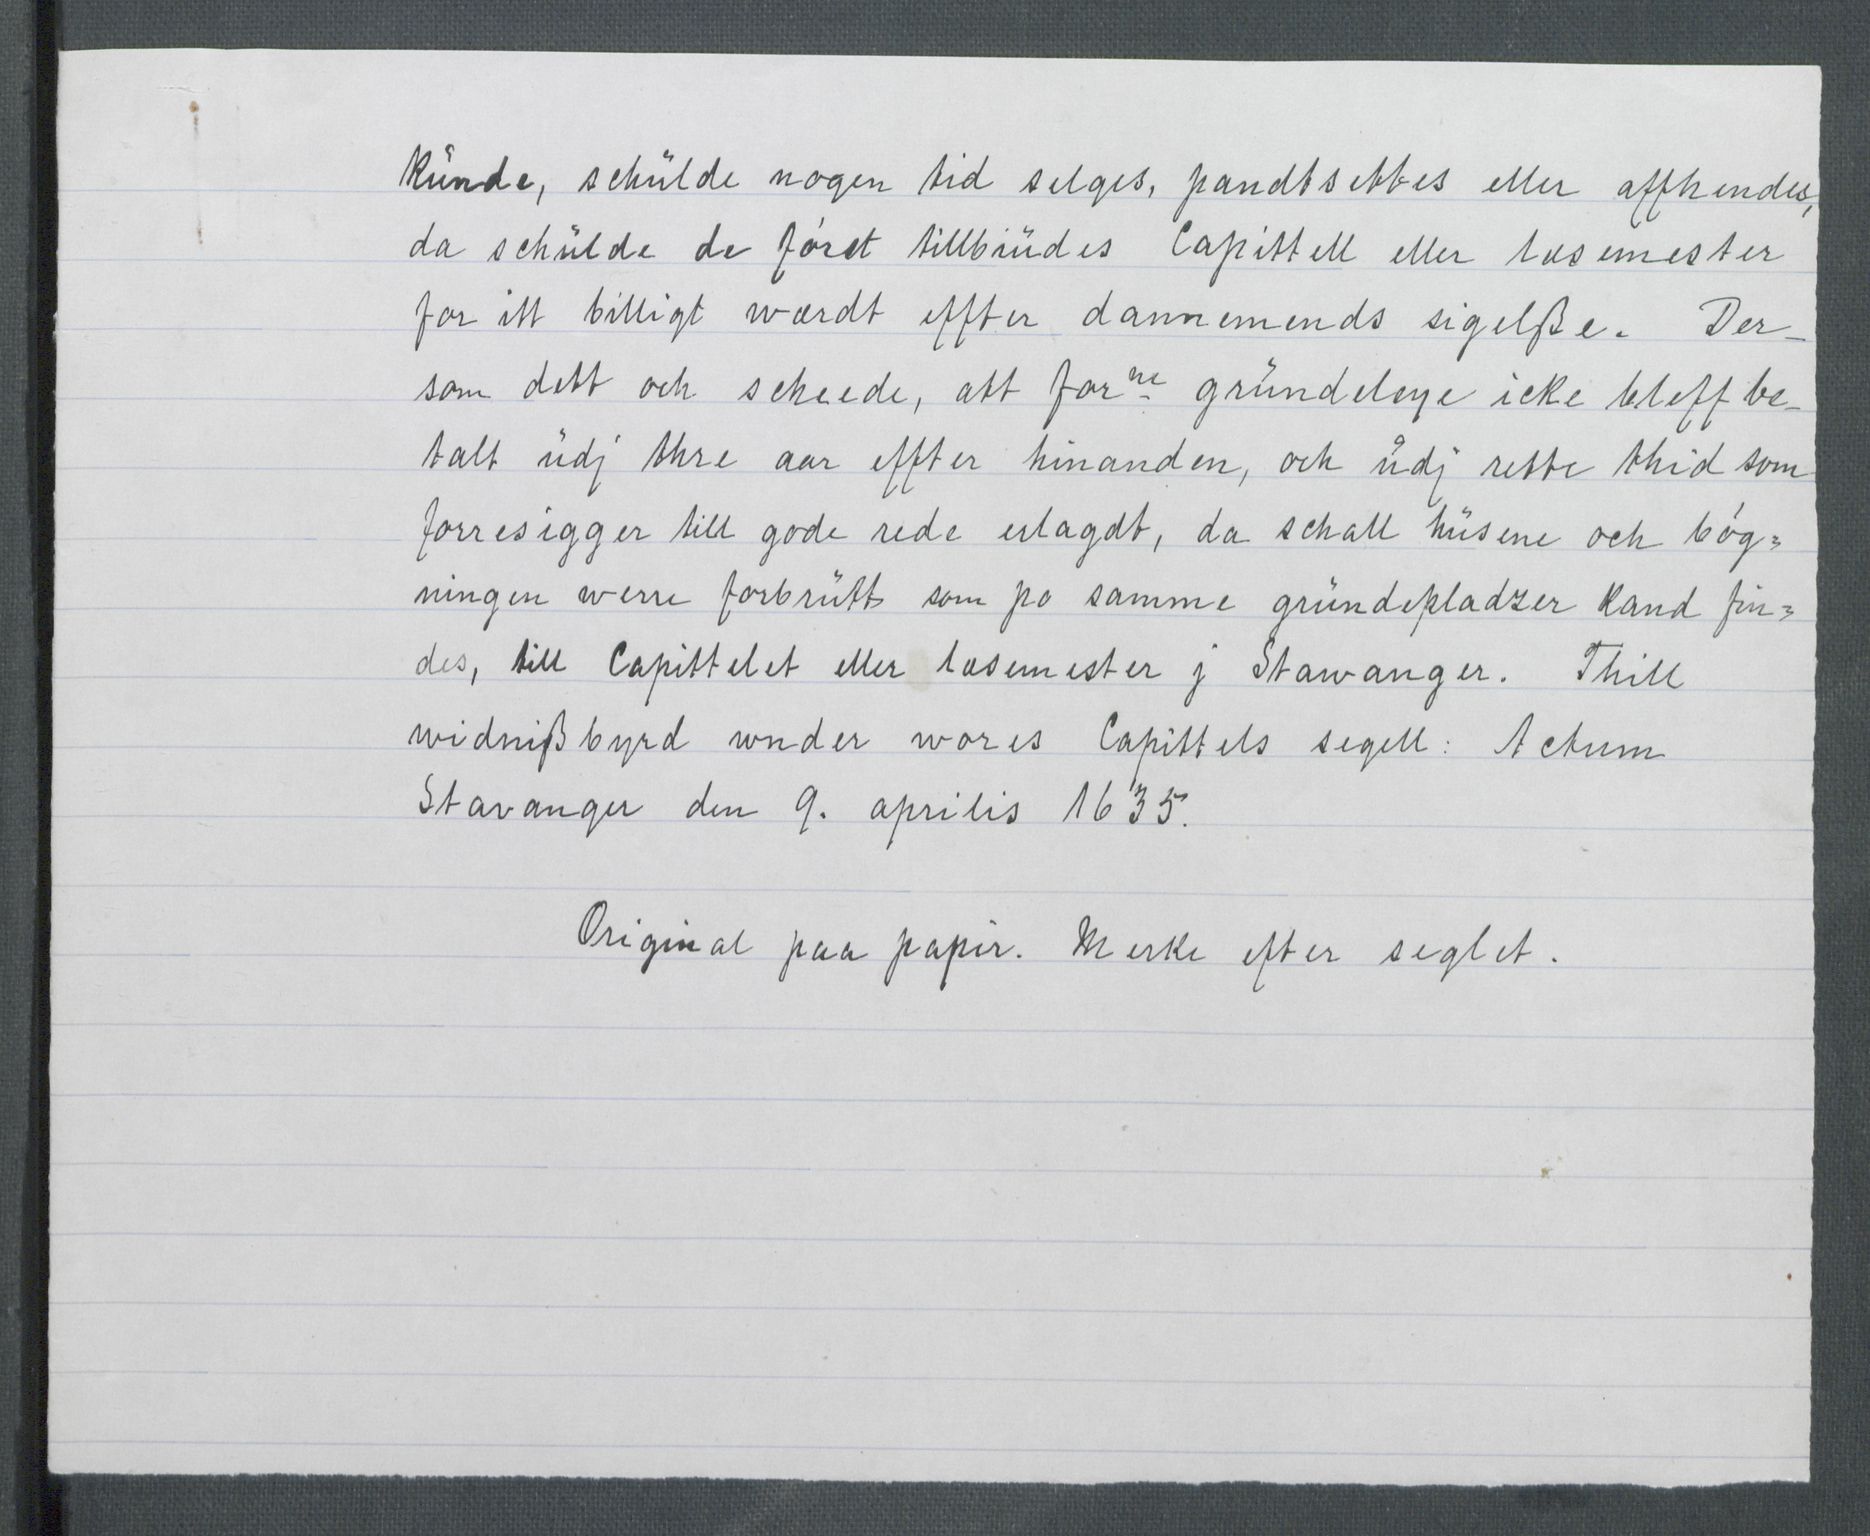 künde, schülde nogen tid selges, pandtsettes eller affhendes,
da schülde de fórst tillbiüdes Capittell eller læsemester
for itt billigt wærdt effter dannemends sigelße. Der-
som dett och scheede, att for<sup>ne</sup> gründeleye icke bleff be-
talt üdj thre aar effter hinanden, och üdj rette thid som
forresigger till gode rede erlagdt, da schall hüsene och bóg=
ningen werre forbrütt som po samme gründepladzer kand fin=
des, till Capittelet eller læsemester j Stawanger. Thill
widnißbyrd wnder wores Capittels segell: Actum
Stavanger den 9. aprilis 1635.
Original paa papir. Merke efter seglet.